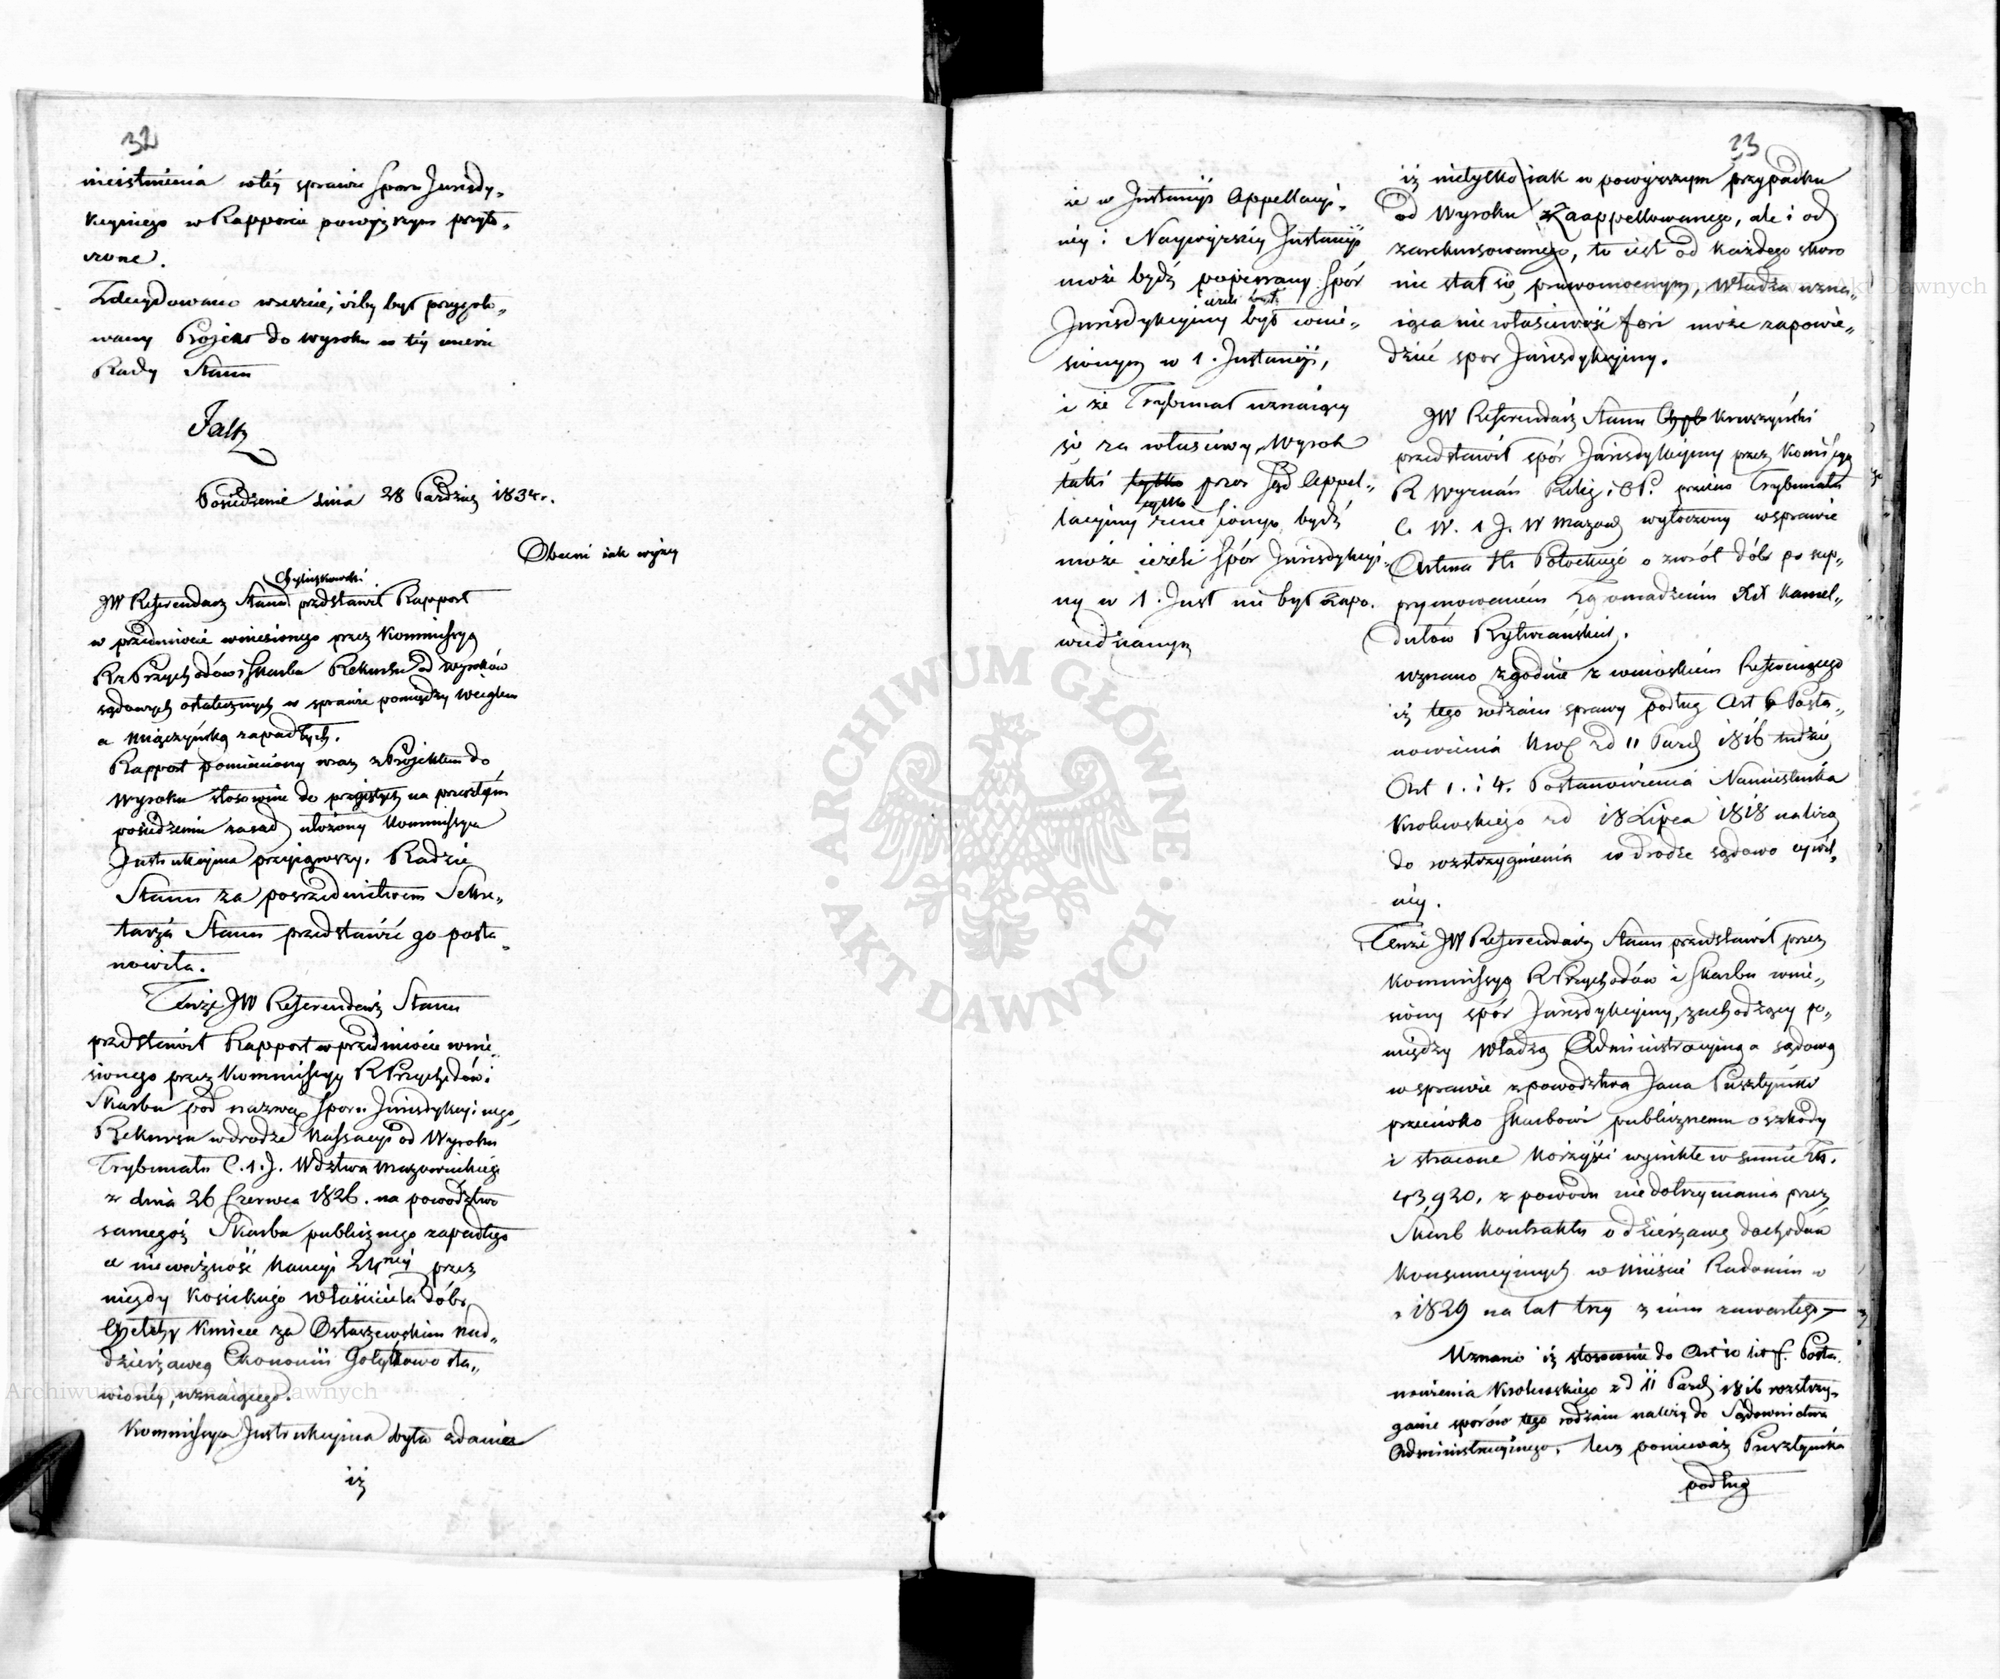 32
nieistnienia w téy sprawie Sporu Jurisdy-
kcyinego w Rapporcie powyższym przyto-
czone.
Zdecydowano wreszcie, iżby był przygoto-
wany Projekt do wyroku w téy mierze
Rady Stanu
Faltz
Posiedzenie dnia 28 Paździer 1834 r.
Obecni iak wyżey
Chyliczkowski
JW Referendarz Stanu przedstawił Rapport
w przedmiocie wniesionego przez Kommissyą
R Przychodów i Skarbu Rekursu od wyroków
sądowych ostatecznych w sprawie pomiędzy
a Miączyńską zapadłych.
Rapport pomieniony wraz z Projektem do
Wyroku stosownie do przyjętych na przeszłym
posiedzeniu zasad ułożony Kommissya
Instrukcyina przyiąwszy, Radzie
Stanu za pośrednictwem Sekre-
tarza Stanu przedstawić go posta-
nowiła.
Tenże JW Referendarz Stanu
przedstawił Rapport w przedmiocie wnie-
sionego przez Kommissyą R Przychodów i
Skarbu pod nazwą Sporu Jurisdykcyinego,
Rekursu w drodze Kassacyi od Wyroku
Trybunału C. 1. J. Wdztwa Mazowieckiego
z dnia 26 Czerwca 1826. na powództwo
samegoż Skarbu publicznego zapadłego
a nieważność Kaucyi przez
niegdy Kosickiego Właściciela dóbr
Kmiece za Ostaszewskim nad-
dzierżawcą Ekonomii sta-
wionéy, uznaiącego.
Kommissya Instrukcyina była zdania
iż
23
że w Instancyi Appellacyi-
néy i Naywyższéy Instancyi
może bydź popierany Spór
Jurisdykcyiny był wnie-
sionym w 1. Instancyi,
i że Trybunał uznaiący
się za właściwy, Wyrok
taki tylko przez Sąd Appel-
tylko
lacyiny bydź
może ieżeli Spór Jurisdykcyi-
ny w 1. Inst nie był zapo-
wiedzianym
iż nietylko iak w powyższym przypadku
od Wyroku Zaappellowanego, ale i od
zarekursowanego, to iest od każdego skoro
nie stał się prawomocnym, Władza uzna-
iąca niewłaściwość fori może zapowie-
dzieć spór Jurisdykcyiny.
JW Referendarz Stanu Kruszyński
przedstawił spór Jurisdykcyiny przez Kommissyą
R Wyznań Relig i OP. przeciw Trybunału
C. W. 1 J. W Mazow wytoczony w sprawie
Artura Hr Potockiego o zwrot dóbr po sup-
prymowaniem Zgromadzeniu XX Kamel-
dułów Rytwiańskich.
uznano zgodnie z wnioskiem Referuiącego
iż tego rodzaiu sprawy podług Art 6 Posta-
nowienia Król zd 11 Paźd 1816 tudzież
Art 1. i 4. Postanowienia Namiestnika
Królewskiego zd 18 Lipca 1818 należą
do rozstrzygnienia w drodze sądowo cywil-
néy.
Tenże JW Referendarz Stanu przedstawił przez
Kommissyą R Przychodów i Skarbu wnie-
siony spór Jurisdykcyiny, zachodzący po-
między Władzą Administracyiną a sądową
w sprawie z powództwa Jana Pusztynika
przeciwko Skarbowi publicznemu o szkody
i stracone Korzyści wynikłe w summie Zł.
43,920, z powodu niedotrzymania przez
Skarb Kontraktu o dzierżawę dochodów
Konsumcyinych w Mieście Radomiu w
r 1829 na lat trzy z nim zawartego
Uznano iż stosownie do Art 10 lit f. Posta-
nowienia Królewskiego zd 11 Paźd 1816 rozstrzy-
ganie sporów tego rodzaiu należy do Sądownictwa
Administracyinego, lecz ponieważ Pusztynika
podług
ARCHIWUM GŁÓWNE
AKT DAWNYCH
Archiwum Główne Akt Dawnych